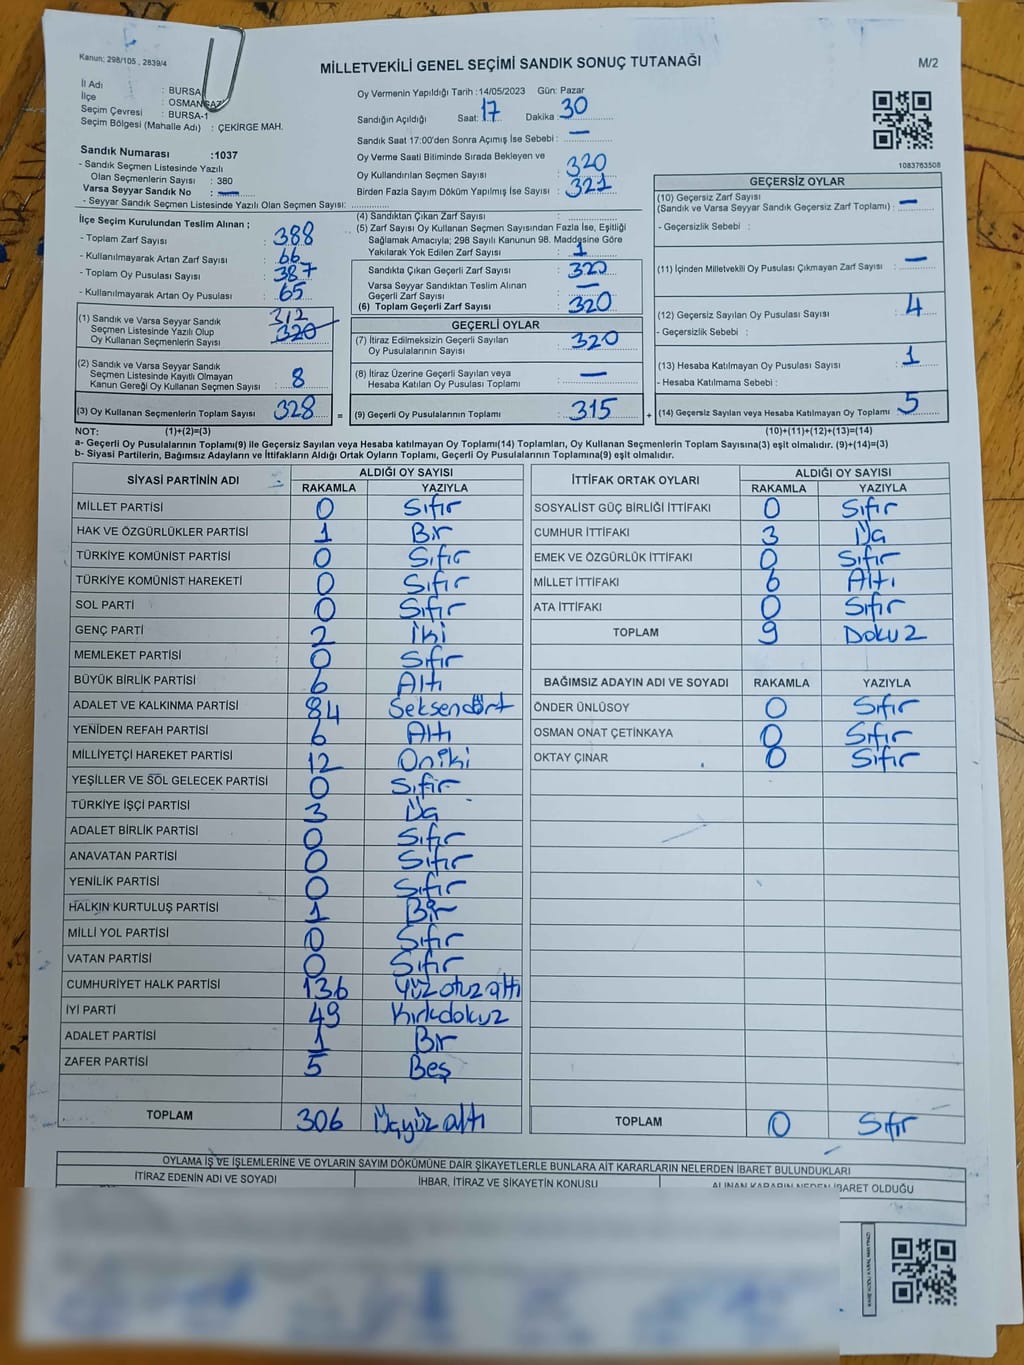 Kanun; 298/105 , 2839/4
MİLLETVEKİLİ GENEL SEÇİMİ SANDIK SONUÇ TUTANAĞI
M/2
İl Adı : BURSA
İlçe : OSMANGAZİ
Seçim Çevresi : BURSA-1
Seçim Bölgesi (Mahalle Adı) : ÇEKİRGE MAH.
Oy Vermenin Yapıldığı Tarih :14/05/2023 Gün: Pazar
Sandığın Açıldığı Saat: 17 Dakika : 30
Sandık Saat 17:00'den Sonra Açımış İse Sebebi : —
Oy Verme Saati Bitiminde Sırada Bekleyen ve
Oy Kullandırılan Seçmen Sayısı : 320
Birden Fazla Sayım Döküm Yapılmış İse Sayısı : 321
1083763508
Sandık Numarası :1037
- Sandık Seçmen Listesinde Yazılı
Olan Seçmenlerin Sayısı : 380
Varsa Seyyar Sandık No : —
- Seyyar Sandık Seçmen Listesinde Yazılı Olan Seçmen Sayısı:
İlçe Seçim Kurulundan Teslim Alınan ;
- Toplam Zarf Sayısı : 388
- Kullanılmayarak Artan Zarf Sayısı : 66
- Toplam Oy Pusulası Sayısı : 387
- Kullanılmayarak Artan Oy Pusulası : 65
(1) Sandık ve Varsa Seyyar Sandık
Seçmen Listesinde Yazılı Olup
Oy Kullanan Seçmenlerin Sayısı : 312 320
(2) Sandık ve Varsa Seyyar Sandık
Seçmen Listesinde Kayıtlı Olmayan
Kanun Gereği Oy Kullanan Seçmen Sayısı : 8
(3) Oy Kullanan Seçmenlerin Toplam Sayısı : 328
(4) Sandıktan Çıkan Zarf Sayısı :
(5) Zarf Sayısı Oy Kullanan Seçmen Sayısından Fazla İse, Eşitliği
Sağlamak Amacıyla; 298 Sayılı Kanunun 98. Maddesine Göre
Yakılarak Yok Edilen Zarf Sayısı : 1
Sandıkta Çıkan Geçerli Zarf Sayısı : 320
Varsa Seyyar Sandıktan Teslim Alınan
Geçerli Zarf Sayısı : —
(6) Toplam Geçerli Zarf Sayısı : 320
GEÇERLİ OYLAR
(7) İtiraz Edilmeksizin Geçerli Sayılan
Oy Pusulalarının Sayısı : 320
(8) İtiraz Üzerine Geçerli Sayılan veya
Hesaba Katılan Oy Pusulası Toplamı : —
= (9) Geçerli Oy Pusulalarının Toplamı : 315
GEÇERSİZ OYLAR
(10) Geçersiz Zarf Sayısı
(Sandık ve Varsa Seyyar Sandık Geçersiz Zarf Toplamı) : —
- Geçersizlik Sebebi :
(11) İçinden Milletvekili Oy Pusulası Çıkmayan Zarf Sayısı : —
(12) Geçersiz Sayılan Oy Pusulası Sayısı : 4
- Geçersizlik Sebebi :
(13) Hesaba Katılmayan Oy Pusulası Sayısı : 1
- Hesaba Katılmama Sebebi :
+ (14) Geçersiz Sayılan veya Hesaba Katılmayan Oy Toplamı : 5
NOT: (1)+(2)=(3)
(10)+(11)+(12)+(13)=(14)
a- Geçerli Oy Pusulalarının Toplamı(9) ile Geçersiz Sayılan veya Hesaba katılmayan Oy Toplamı(14) Toplamları, Oy Kullanan Seçmenlerin Toplam Sayısına(3) eşit olmalıdır. (9)+(14)=(3)
b- Siyasi Partilerin, Bağımsız Adayların ve İttifakların Aldığı Ortak Oyların Toplamı, Geçerli Oy Pusulalarının Toplamına(9) eşit olmalıdır.
SİYASİ PARTİNİN ADI ALDIĞI OY SAYISI
RAKAMLA YAZIYLA
MİLLET PARTİSİ 0 Sıfır
HAK VE ÖZGÜRLÜKLER PARTİSİ 1 Bir
TÜRKİYE KOMÜNİST PARTİSİ 0 Sıfır
TÜRKİYE KOMÜNİST HAREKETİ 0 Sıfır
SOL PARTİ 0 Sıfır
GENÇ PARTİ 2 İki
MEMLEKET PARTİSİ 0 Sıfır
BÜYÜK BİRLİK PARTİSİ 6 Altı
ADALET VE KALKINMA PARTİSİ 84 Seksendört
YENİDEN REFAH PARTİSİ 6 Altı
MİLLİYETÇİ HAREKET PARTİSİ 12 Oniki
YEŞİLLER VE SOL GELECEK PARTİSİ 0 Sıfır
TÜRKİYE İŞÇİ PARTİSİ 3 Üç
ADALET BİRLİK PARTİSİ 0 Sıfır
ANAVATAN PARTİSİ 0 Sıfır
YENİLİK PARTİSİ 0 Sıfır
HALKIN KURTULUŞ PARTİSİ 1 Bir
MİLLİ YOL PARTİSİ 0 Sıfır
VATAN PARTİSİ 0 Sıfır
CUMHURİYET HALK PARTİSİ 136 Yüzotuzaltı
İYİ PARTİ 49 Kırkdokuz
ADALET PARTİSİ 1 Bir
ZAFER PARTİSİ 5 Beş
TOPLAM 306 Üçyüzaltı
İTTİFAK ORTAK OYLARI ALDIĞI OY SAYISI
RAKAMLA YAZIYLA
SOSYALİST GÜÇ BİRLİĞİ İTTİFAKI 0 Sıfır
CUMHUR İTTİFAKI 3 Üç
EMEK VE ÖZGÜRLÜK İTTİFAKI 0 Sıfır
MİLLET İTTİFAKI 6 Altı
ATA İTTİFAKI 0 Sıfır
TOPLAM 9 Dokuz
BAĞIMSIZ ADAYIN ADI VE SOYADI RAKAMLA YAZIYLA
ÖNDER ÜNLÜSOY 0 Sıfır
OSMAN ONAT ÇETİNKAYA 0 Sıfır
OKTAY ÇINAR 0 Sıfır
TOPLAM 0 Sıfır
OYLAMA İŞ VE İŞLEMLERİNE VE OYLARIN SAYIM DÖKÜMÜNE DAİR ŞİKAYETLERLE BUNLARA AİT KARARLARIN NELERDEN İBARET BULUNDUKLARI
İTİRAZ EDENİN ADI VE SOYADI İHBAR, İTİRAZ VE ŞİKAYETİN KONUSU ALINAN KARARIN NEDEN İBARET OLDUĞU